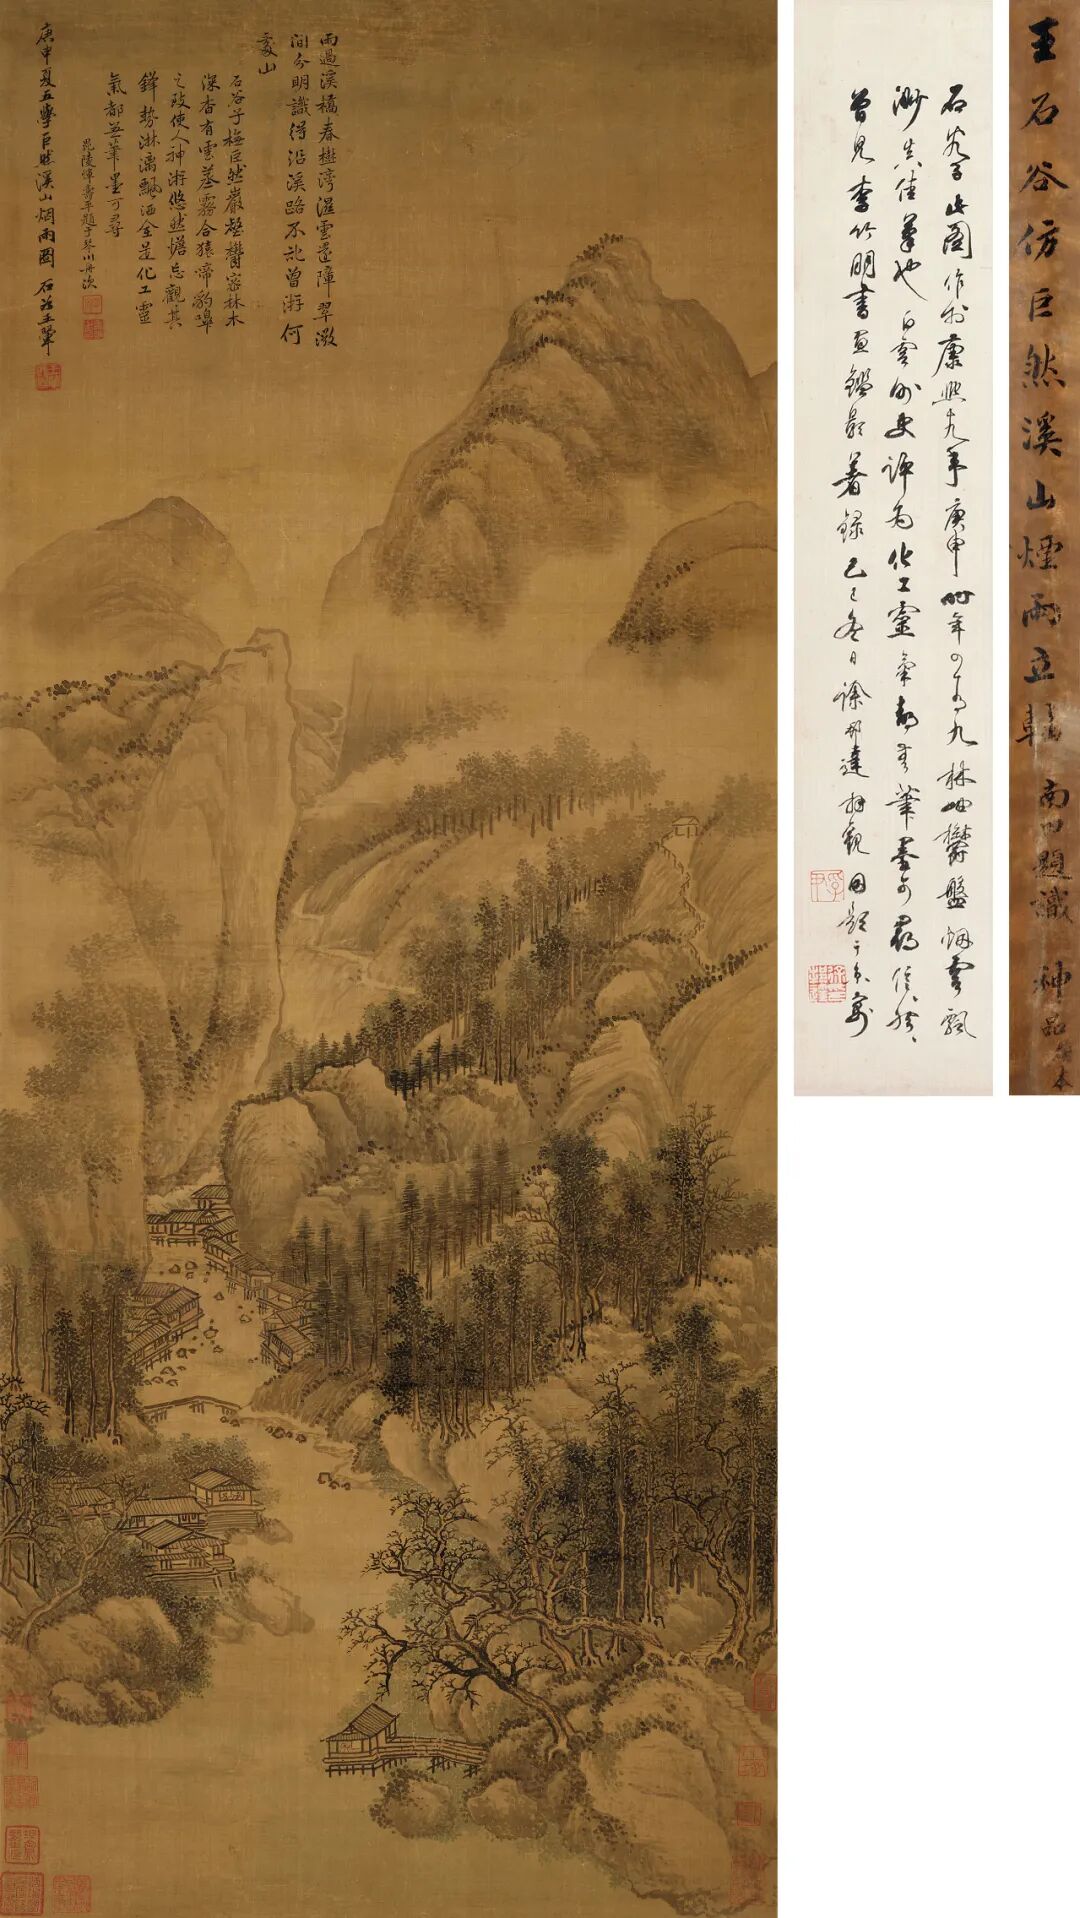 雨過溪橋春樹灣溼雲遠障翠微
間分明識得沿溪路不記曾游何
處山
石谷子橅巨然巖壑鬱密林木
深杳有雲蒸霧合猿啼豹嘷
之致使人神游悠然憺忘觀其
鋒勢淋漓飄洒全是化工靈
氣都無筆墨可尋
毘陵惲壽平題于琴川舟次
庚申夏五學巨然溪山烟雨圖 石谷王翬
石谷子此圖作於康熙十九年庚申時年四十有九林岫鬱盤烟雲飄
渺真佳筆也白雲外史評為化工靈氣都無筆墨可尋信然
曾見李竹朋書畫鑑影著錄己巳冬日徐邦達拜觀因題于京寓
王石谷仿巨然溪山煙雨立軸 南田題識 神品 本